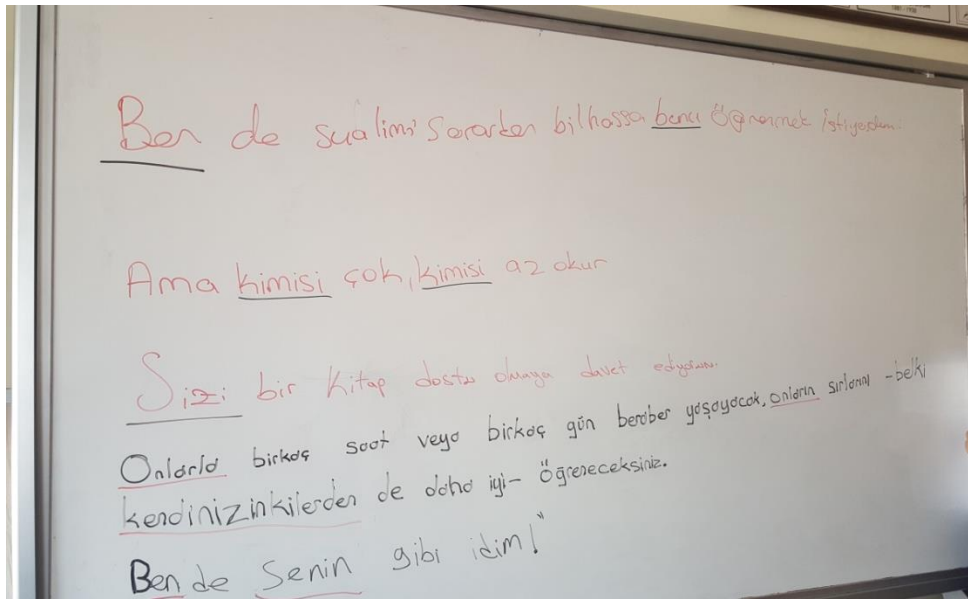 Ben de sualimi sorarken bilhassa bunu öğrenmek istiyordum.
Ama kimisi çok, kimisi az okur
Sizi bir kitap dostu olmaya davet ediyorum.
Onlarla birkaç saat veya birkaç gün beraber yaşayacak, onların sırlarını -belki
kendinizinkilerden de daha iyi- öğreneceksiniz.
Ben de Senin gibi idim!"